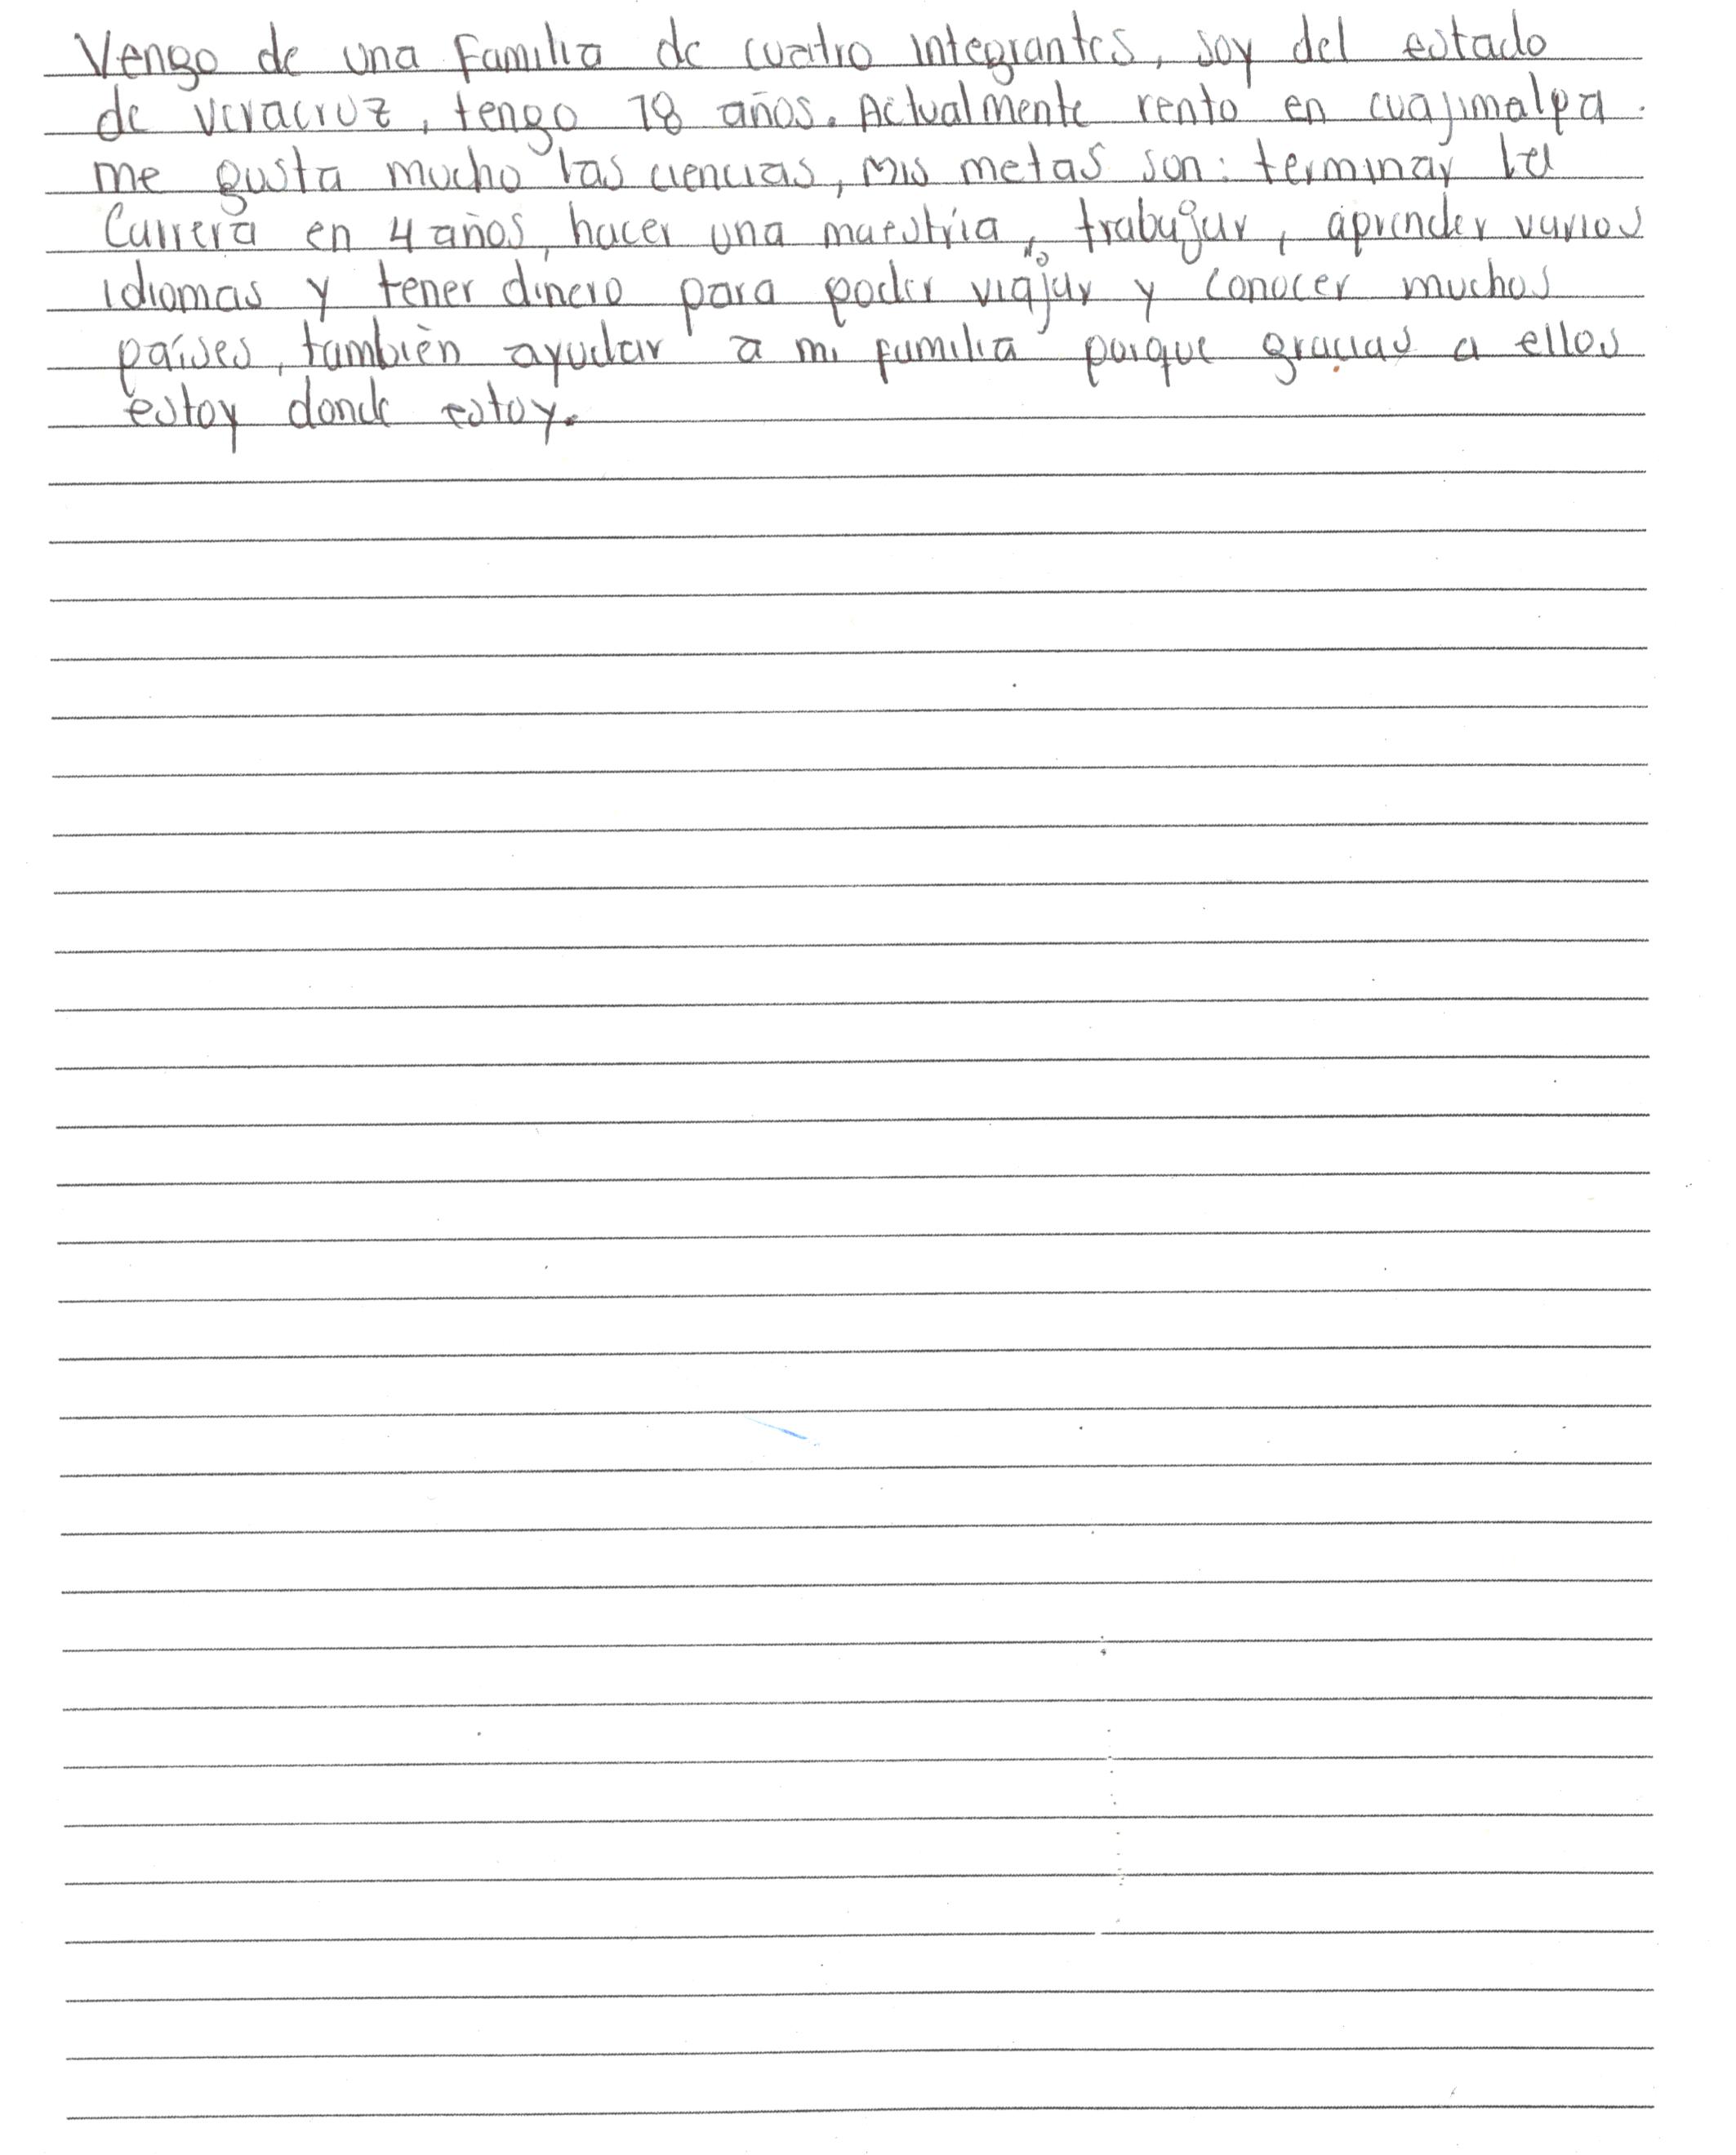 Vengo de una Familia de cuatro integrantes, soy del estado
de veracruz, tengo 18 años. Actualmente rento en cuajimalpa.
me gusta mucho las ciencias, mis metas son: terminar la
Carrera en 4 años, hacer una maestría, trabajar, aprender varios
idiomas y tener dinero para poder viajar y conocer muchos
países, también ayudar a mi familia porque gracias a ellos
estoy donde estoy.